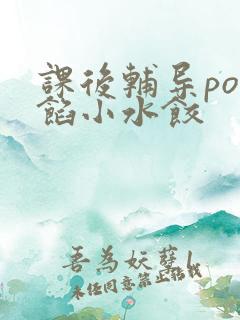 課後輔导po
餡小水餃
吾為妖孽1
未经同意禁止转载